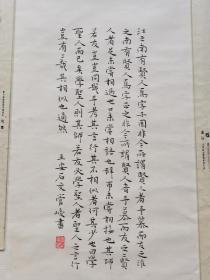 江之南有賢人焉字子固非今所謂賢人者予慕而友之淮
之南有賢人焉字正之非今所謂賢人者予慕而友之二賢
人者足未嘗相過也口未嘗相語也辭幣未嘗相接也其師
若友豈盡同哉予考其言行其不相似者何其少也曰學
聖人而已矣學聖人則其師若友必學聖人者聖人之言行
豈有二哉其相似也適然
王安石文管峻書